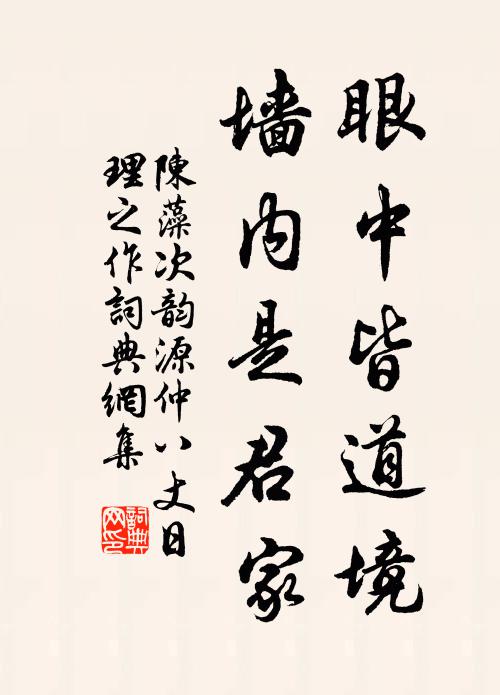 眼中皆道境
墙内是君家
陳藻次韵源仲八丈日
理之作詞典網集
詞典
网印